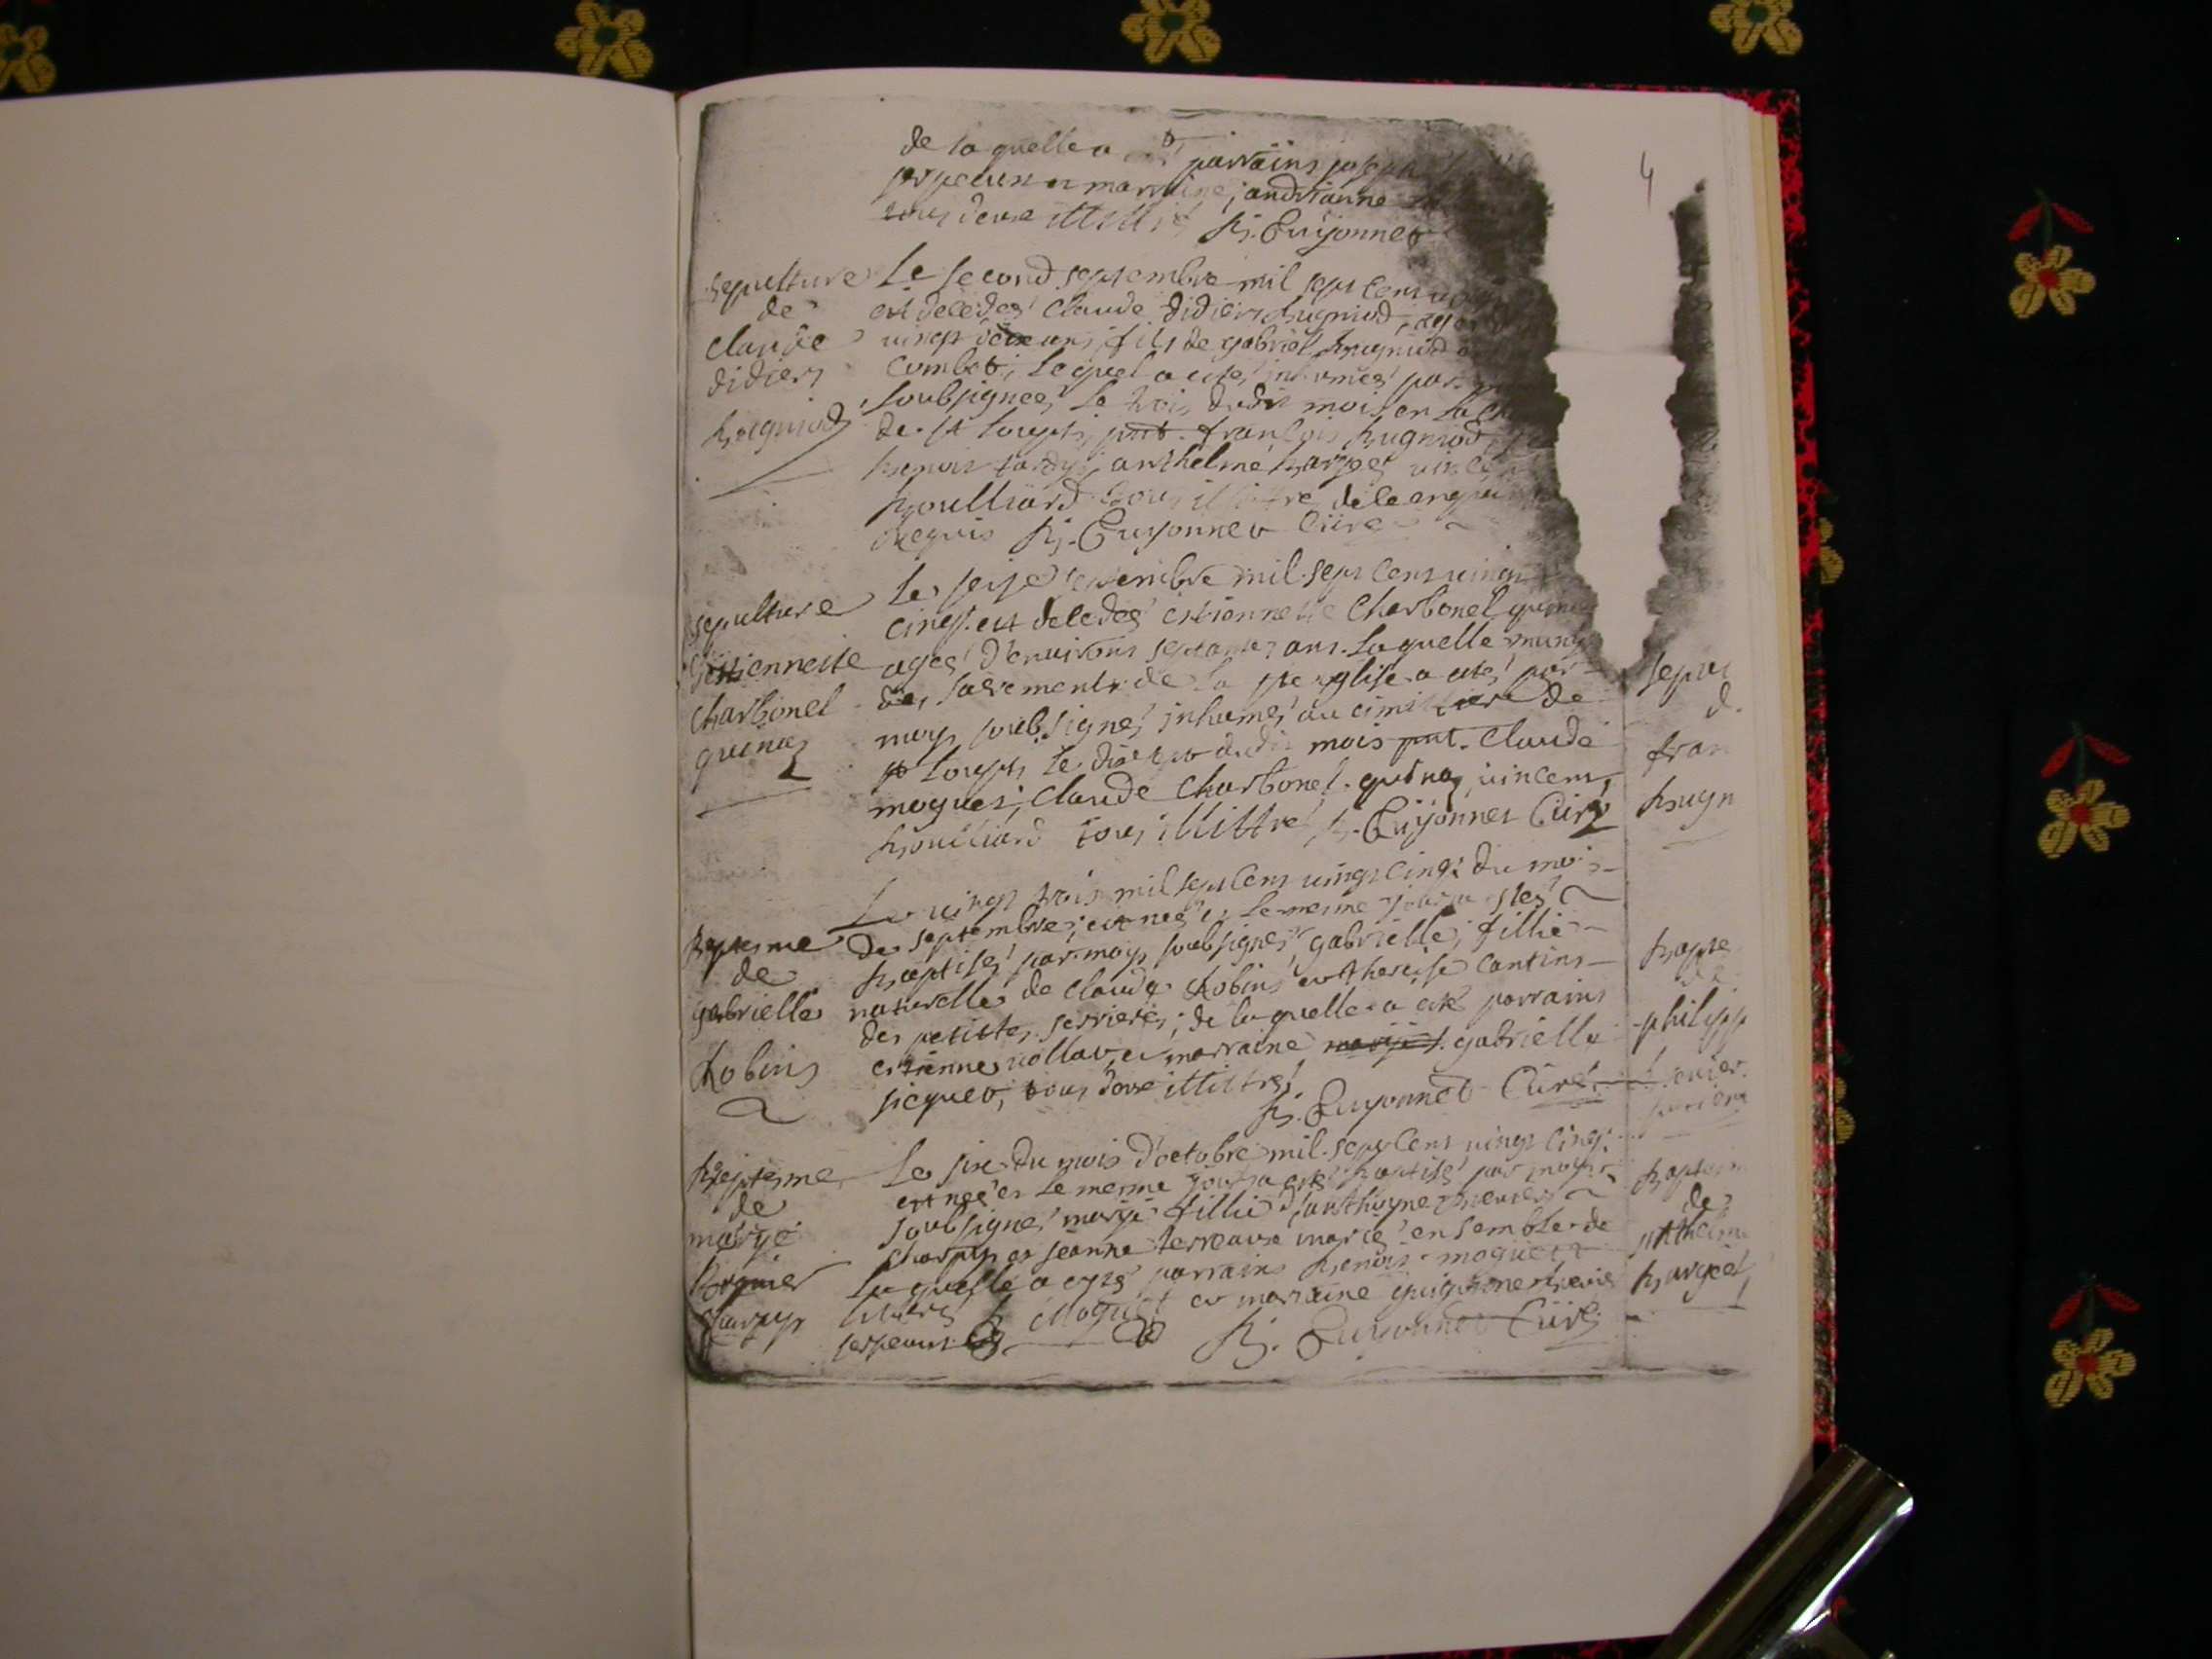 4
de laquelle a parrains joseph
perpeaux et marraine jandrianne
tous deux illitré B. Guÿonnet
sepulture
de
claude
didier
hugniod
Le second septembre mil sept cens
est décedes claude didier hugniod, agé
vingt deux ans, fils de gabriel hugniod
Combet, lequel a esté inhumés par
soubsignes le trois dudit mois en la
de st loupt, pnt. françois hugniod,
benois tardy, anthelme barges vincen
bouilliard tous illitre de ce enquis
Requis B. Guÿonnet Curé
sepulture
Estiennette
charbonel
guinaz
Le seize septembre mil sept cens vingt
cinq est decedes estiennette Charbonel guina
agés d'environs septante ans. laquelle munÿ
des sacrements de la ste eglise a estés par
moy soubsignés inhumés au cimittiere de
st loupt le dix sept dudit mois pnt. Claude
moguet, Claude Charbonel guinaz, vincent
bouilliard tous illittré B. Guÿonnet Curé
Baptesme
de
gabrielle
Robins
Le vingt trois mil sept cens vingt cinq du mois
de septembre, est nes et le mesme jour a estes
baptisés par moy soubsignes, gabrielle, fillie
naturelle de claude Robins et therese cantins
des petittes serrieres; de laquelle a esté parrains
estienne vollat, et marraine gabrielle
jicquet, tous deux illittrés,
B. Guyonnet Curé
Baptesme
de
marÿe
charpy
Le six du mois d'octobre mil sept cens vingt cinq
est neé et le mesme jour a estés baptisés par moy
soubsignes marÿe fillie d'anthoyne
charpy et jeanne terreaux mariés ensemble de
laquelle a estés parrains benois moguet
littérés B Moguet et marraine
perpeaux B. Guyonnet Curé
sepu
d.
fran
hugn
bapte
de
philipp
baptem
de
anthelme
bargeet